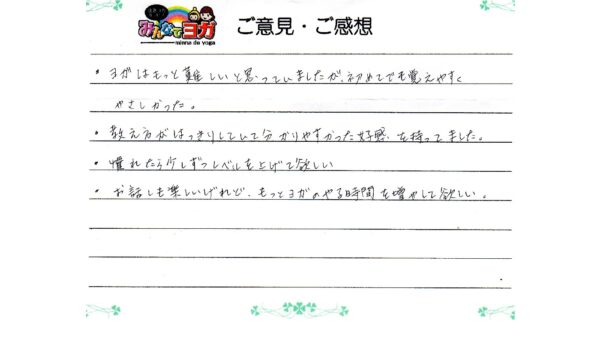 みんなでヨガ
minna de yoga
ご意見・ご感想
・ヨガはもっと難しいと思っていましたが、初めてでも覚えやすく
やさしかった。
・教え方がはっきりしていて分かりやすかった好感を持てました。
・慣れたら少しずつレベルを上げて欲しい
・お話しも楽しいけれど、もっとヨガのやる時間を増やして欲しい。